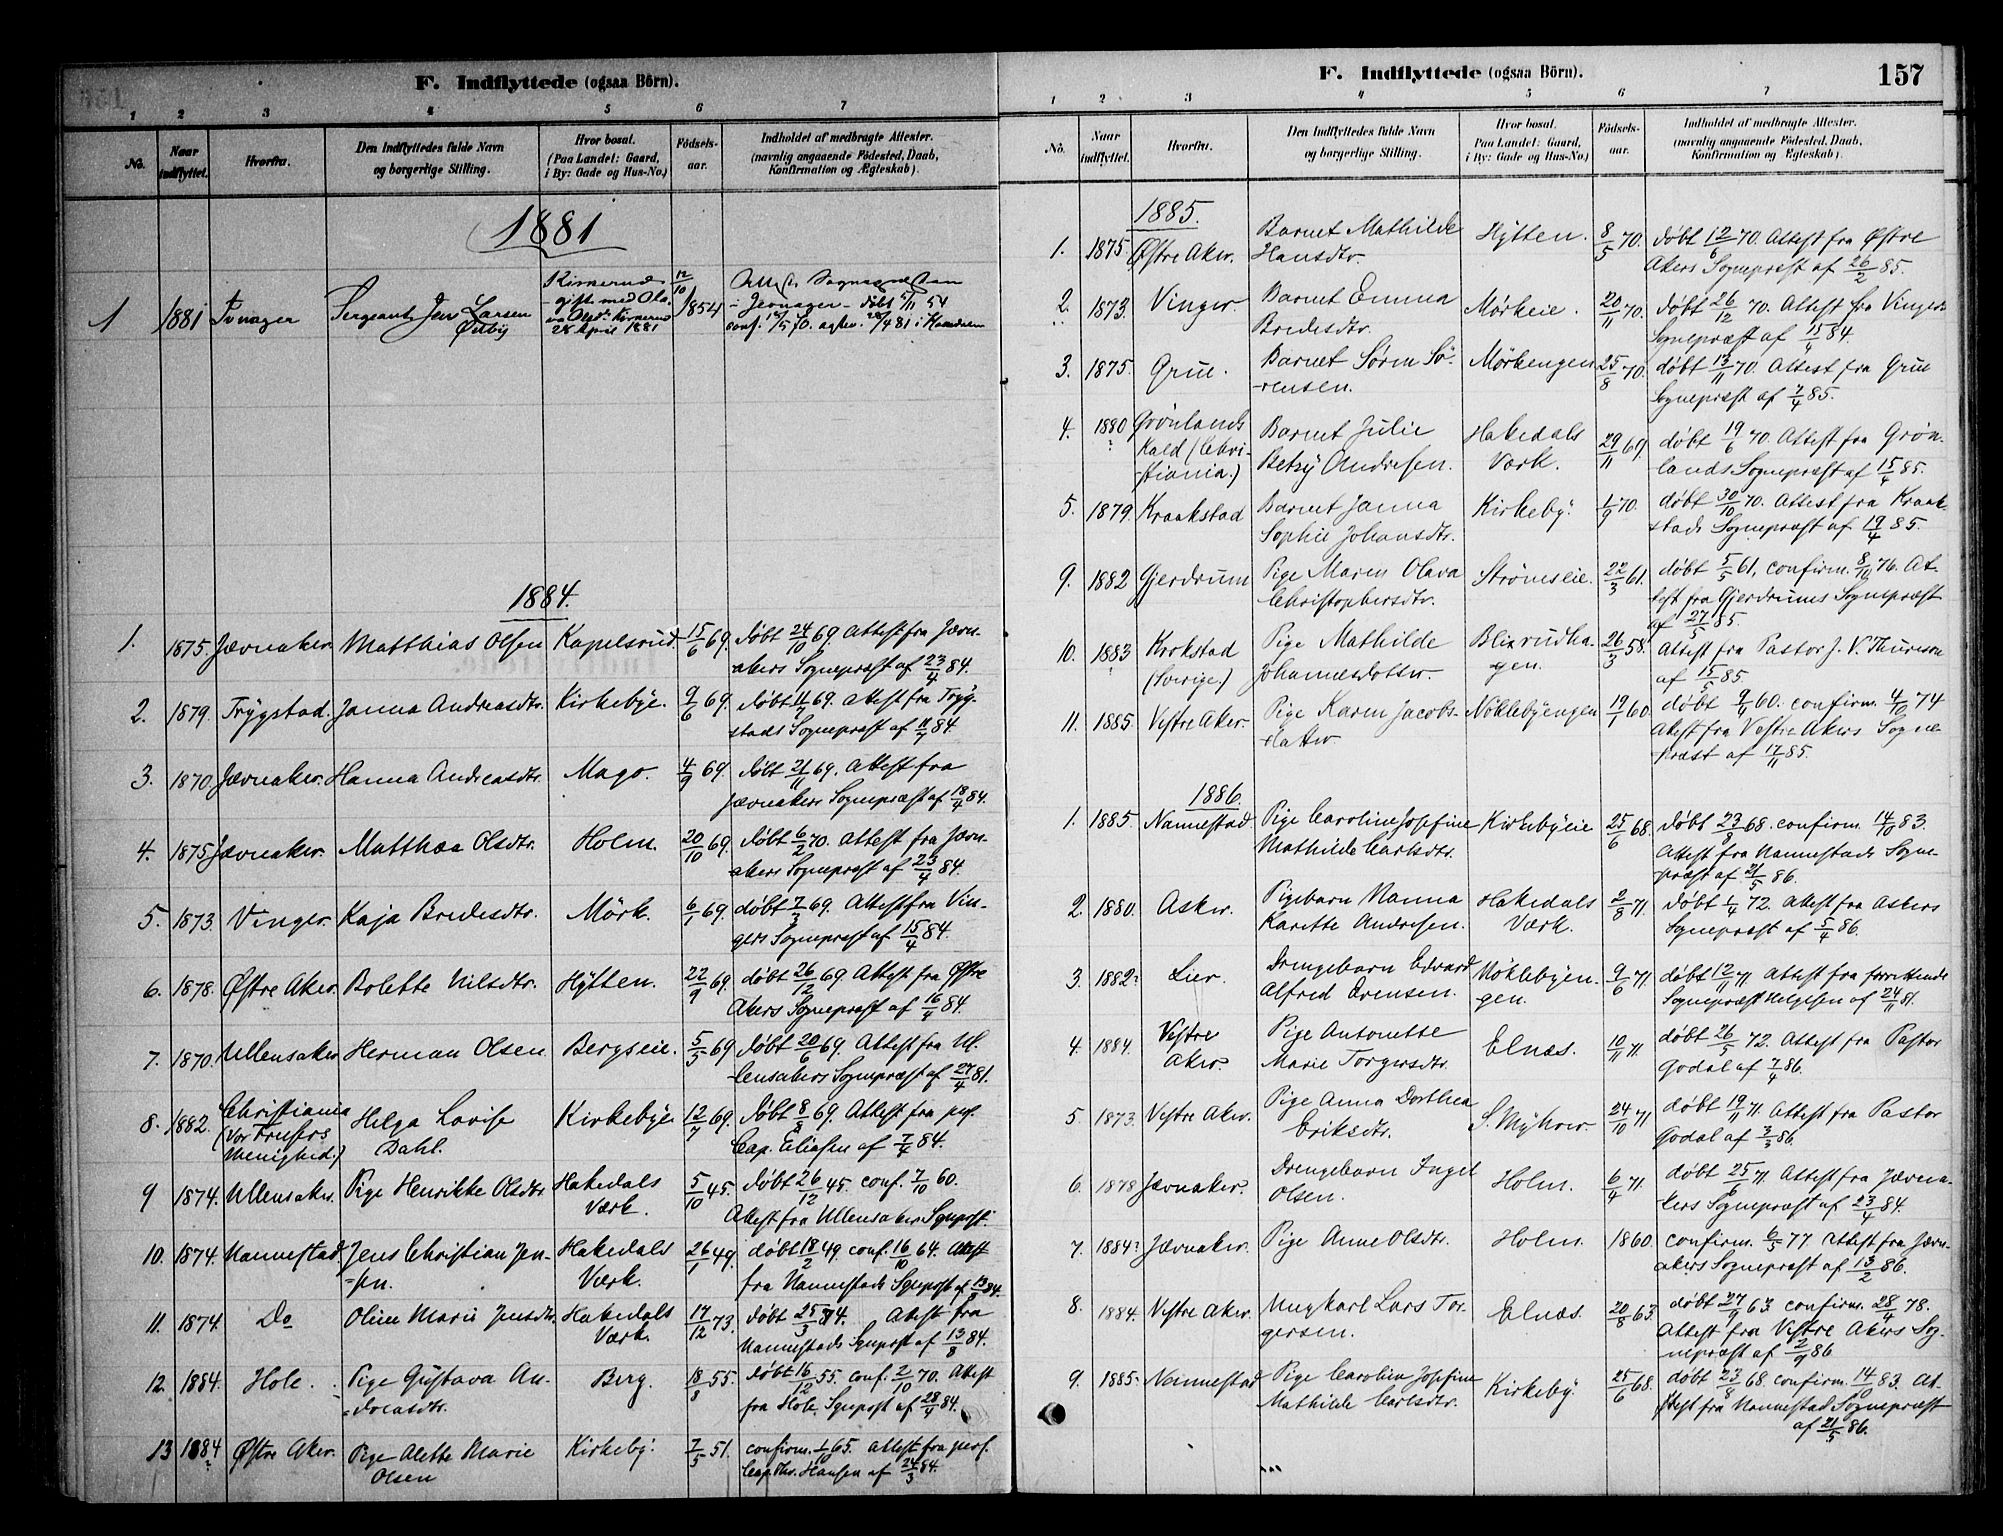 F. Indflyttede (ogsaa Börn).
1 2 3 4 5 6 7
No. Naar indflyttet. Hvorfra. Den Indflyttedes fulde Navn og borgerlige Stilling. Hvor bosat. (Paa Landet: Gaard, i By: Gade og Hus-No.) Födsels-aar. Indholdet af medbragte Attester. (navnlig angaaende Födested, Daab, Konfirmation og Ægteskab).
1881
1 1881 Jvnager Sergeant Jens Larsen 12/10 1854
gift med Ole
28 April 1881
Jevnager - døbt 5/11 54
1884.
1. 1875. Jævnaker. Matthias Olsen Kapelsrud. 15/6 69. døbt 24/10 69. Attest fra Jævn-
akers Sognepræst af 23/4 84.
2. 1879. Trygstad. Janna Andreasdtr. Kirkebye. 9/6 69. døbt 11/7 69. Attest fra Tryg-
stads Sognepræst af 84.
3. 1870. Jævnaker. Hanna Andreasdtr. Mago. 4/9 69. døbt 21/11 69. Attest fra
Jævnakers Sognepræst af 18/4 84.
4. 1875. Jævnaker. Matthæa Olsdtr. Holm. 20/10 69. døbt 6/2 70. Attest fra Jævn-
akers Sognepræst af 23/4 84.
5. 1873. Vinger. Kaja Bredesdtr. Mörk. 6/1 69. døbt 7/3 69. Attest fra Vin-
gers Sognepræst af 15/4 84.
6. 1878. Østre Aker. Bolette Nilsdtr. Hytten. 22/9 69. døbt 26/12 69. Attest fra Østre
Akers Sognepræst af 16/4 84.
7. 1870. Ullensaker Herman Olsen Bergseie. 5/5 69 døbt 20/6 69. Attest fra Ul-
lensakers Sognepræst af 27/4 81.
8. 1882. Christiania (Vor Frelsers Menighed.) Helga Lovise Dahl. Kirkebye 12/7 69. døbt 8/8 69. Attest fra pers.
Cap. Eliassen af 7/4 84.
9 1874. Ullensaker. Pige Henrikke Olsdtr. Hakedals Værk. 5/10 45. døbt 26/12 45. conf. 7/10 60.
Attest fra Ullensaker Sgnprst.
10. 1874. Nannestad. Jens Christian Jen-
-sen. Hakedals Værk. 26/1 49. døbt 18/2 49. conf. 16/10 64. Attest
fra Nannestads Sgnprst af 13/8 84.
11. 1874. Do Oline Marie Jensdtr. Hakedals Værk. 17/12 73. døbt 25/3 74. Attest fra
Nannestads Sgnprst af 13/8 84.
12. 1884. Hole. Pige Gustava An-
-dreasdtr. Berg. 18/8 55. døbt 16/12 55. conf. 2/10 70. Attest
fra Hole Sgnprst af 28/4 84.
13 1884 Østre Aker. Pige Alette Marie
Olsen Kirkeby. 7/5 51. confirm. 1/10 65. Attest fra pers.
Cap. Hansen af 24/3 84.
F. Indflyttede (ogsaa Börn). 157
1 2 3 4 5 6 7
No. Naar indflyttet. Hvorfra. Den Indflyttedes fulde Navn og borgerlige Stilling. Hvor bosat. (Paa Landet: Gaard, i By: Gade og Hus-No.) Födsels-aar. Indholdet af medbragte Attester. (navnlig angaaende Födested, Daab, Konfirmation og Ægteskab).
1885.
1. 1875 Østre Aker. Barnet Mathilde
Hansdtr. Hytten. 8/5 70. døbt 12/6 70. Attest fra Østre
Akers Sognepræst af 26/2 85.
2. 1873. Vinger. Barnet Emma
Bredesdtr. Mörkeie. 20/11 70. døbt 26/12 70. Attest fra Vingers
Sognepræst af 15/4 84.
3. 1875. Grue. Barnet Sörm Sö-
-rensen. Mörkengen 25/8 70. døbt 13/11 70. Attest fra Grue
Sognepræst af 7/4 85.
4. 1880 Grönlands Kald (Chri-
stiania.) Barnet Julie
Betsy Andresen. Hakedals Værk. 29/11 69. døbt 19/6 70. Attest fra Grön-
lands Sognepræst af 15/4 85.
5. 1879. Kraakstad Barnet Janna
Sophie Johansdtr. Kirkeby. 1/9 70. døbt 30/10 70. Attest fra Kraak-
stads Sognepræst af 19/4 85.
9. 1882 Gjerdrum Pige Maren Olava
Christophersdtr. Strömseie. 22/3 61. døbt 5/5 61, confirm. 8/10 76. At-
test fra Gjerdrums Sognepræst
af 27/5 85.
10. 1883 Krokstad (Sverige.) Pige Mathilde
Johannesdotter. Blixrudha-
gen. 26/3 58. Attest fra Pastor J. V. Thureson
af 15/5 85.
11. 1885 Vestre Aker. Pige Karen Jacobs-
datter. Nöklebyengen 19/1 60. døbt 60. confirm. 4/10 74
Attest fra Vestre Akers Sogne-
præst af 17/11 85.
1886.
1. 1885. Nannestad. Pige Caroline Josefine
Mathilde Carlsdtr. Kirkebyeie 25/6 68. døbt 23/8 68. confirm. 14/10 83.
Attest fra Nannestads Sogne-
præst af 21/5 86.
2. 1880. Asker. Pigebarn Nanna
Karette Andresen. Hakedals Værk. 2/8 71. døbt 1/4 72. Attest fra Askers
Sognepræst af 5/4 86.
3. 1882? Lier. Drengebarn Edvard
Alfred Evensen. Nöklebyen-
gen. 9/6 71. døbt 12/11 71 Attest fra forrettende
Sognepræst Helgesen af 24/11 81.
4. 1884. Vestre Aker. Pige Antonette
Marie Torgersdtr. Elnæs. 10/11 71. døbt 26/5 72. Attest fra Pastor
Godal af 7/4 86.
5. 1873. Vestre Aker. Pige Anna Dorthea
Eriksdtr. S. Myhrer. 24/10 71 døbt 19/11 71. Attest fra Pastor
Godal af 3/3 86.
6. 1878 Jævnaker. Drengebarn Ingel
Olsen. Holm. 6/4 71. døbt 25/5 71. Attest fra Jævna-
kers Sognepræst af 23/4 84.
7. 1884? Jævnaker. Pige Anne Olsdtr. Holm. 1860. confirm. 6/5 77 Attest fra Jævn-
akers Sognepræst af 13/2 86.
8. 1884. Vestre Aker. Ungkarl Lars Tor-
gersen. Elnæs. 20/8 63. døbt 27/9 63. confirm. 28/4 78.
Attest fra Vestre Akers Sog-
nepræst af 2/9 86
9. 1885. Nannestad Pige Caroline Josefine
Mathilde Carlsdtr. Kirkeby. 25/6 68. døbt 23/8 68. confirm. 14/10 83. At-
test fra Nannestad Sognepræst
af 21/5 86.